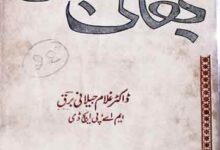 بھائی
ڈاکٹر غلام جیلانی برق
ایم اے، پی ایچ ڈی